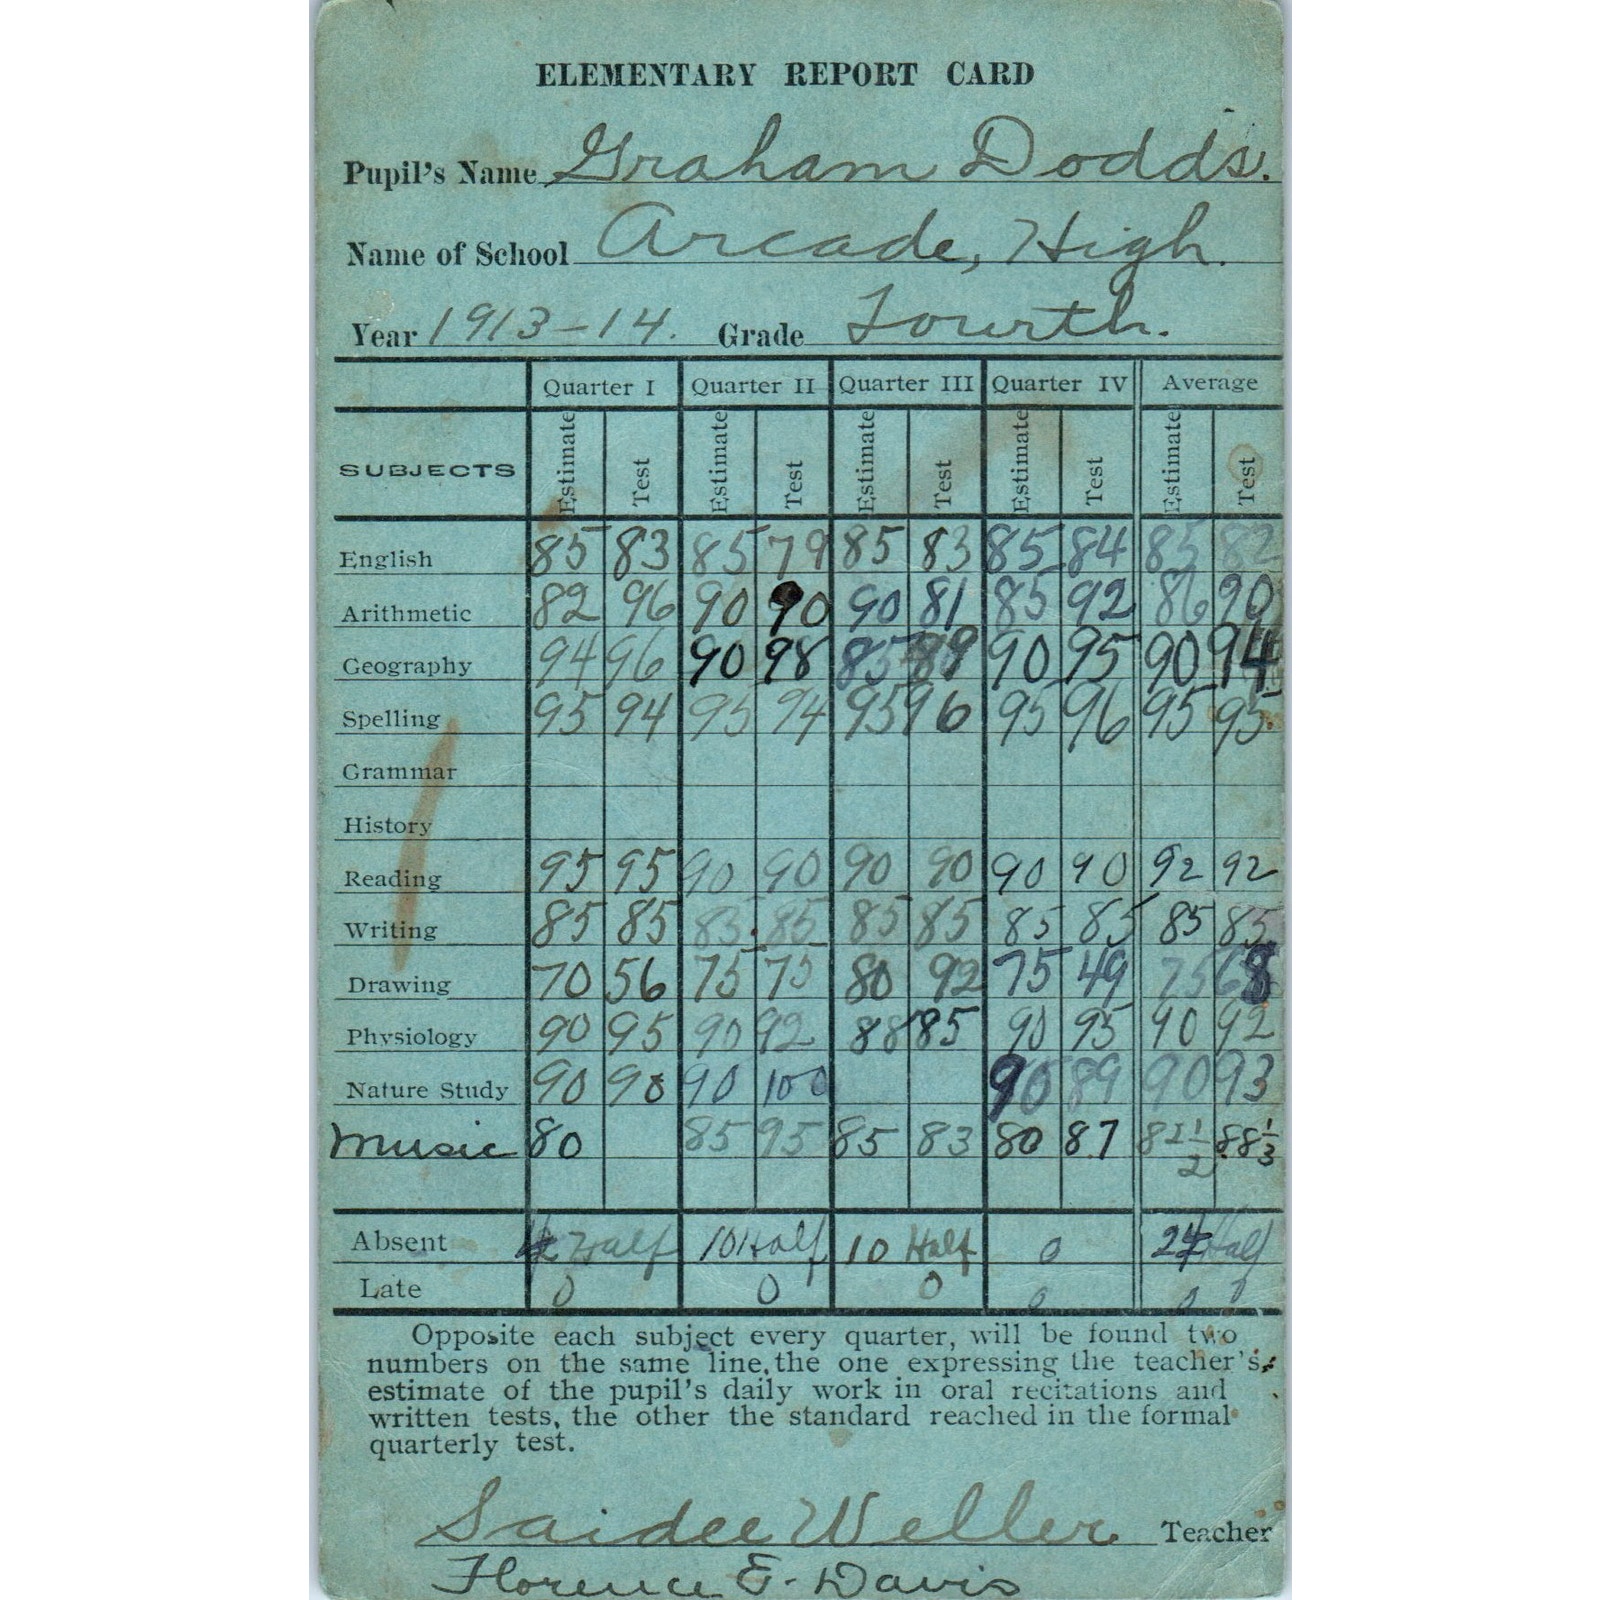 ELEMENTARY REPORT CARD
Pupil's Name Graham Dodds.
Name of School Arcade, High.
Year 1913-14. Grade Fourth.
Quarter I Quarter II Quarter III Quarter IV Average
SUBJECTS Estimate Test Estimate Test Estimate Test Estimate Test Estimate Test
English 85 83 85 79 85 83 85 84 85 82
Arithmetic 82 96 90 90 90 81 85 92 86 90
Geography 94 96 90 98 85 89 90 95 90 94
Spelling 95 94 95 94 95 96 95 96 95 95.
Grammar
History
Reading 95 95 90 90 90 90 90 90 92 92
Writing 85 85 85 85 85 85 85 85 85 85
Drawing 70 56 75 75 80 92 75 49 75 68
Physiology 90 95 90 92 88 85 90 95 90 92
Nature Study 90 90 90 100 90 89 90 93
Music 80 85 95 85 83 80 87 82 1/2 88 1/3
Absent 4 Half 10 Half 10 Half 0 24 Half
Late 0 0 0 0 0 0
Opposite each subject every quarter, will be found two
numbers on the same line, the one expressing the teacher's
estimate of the pupil's daily work in oral recitations and
written tests, the other the standard reached in the formal
quarterly test.
Saidee Weller Teacher
Florence E. Davis